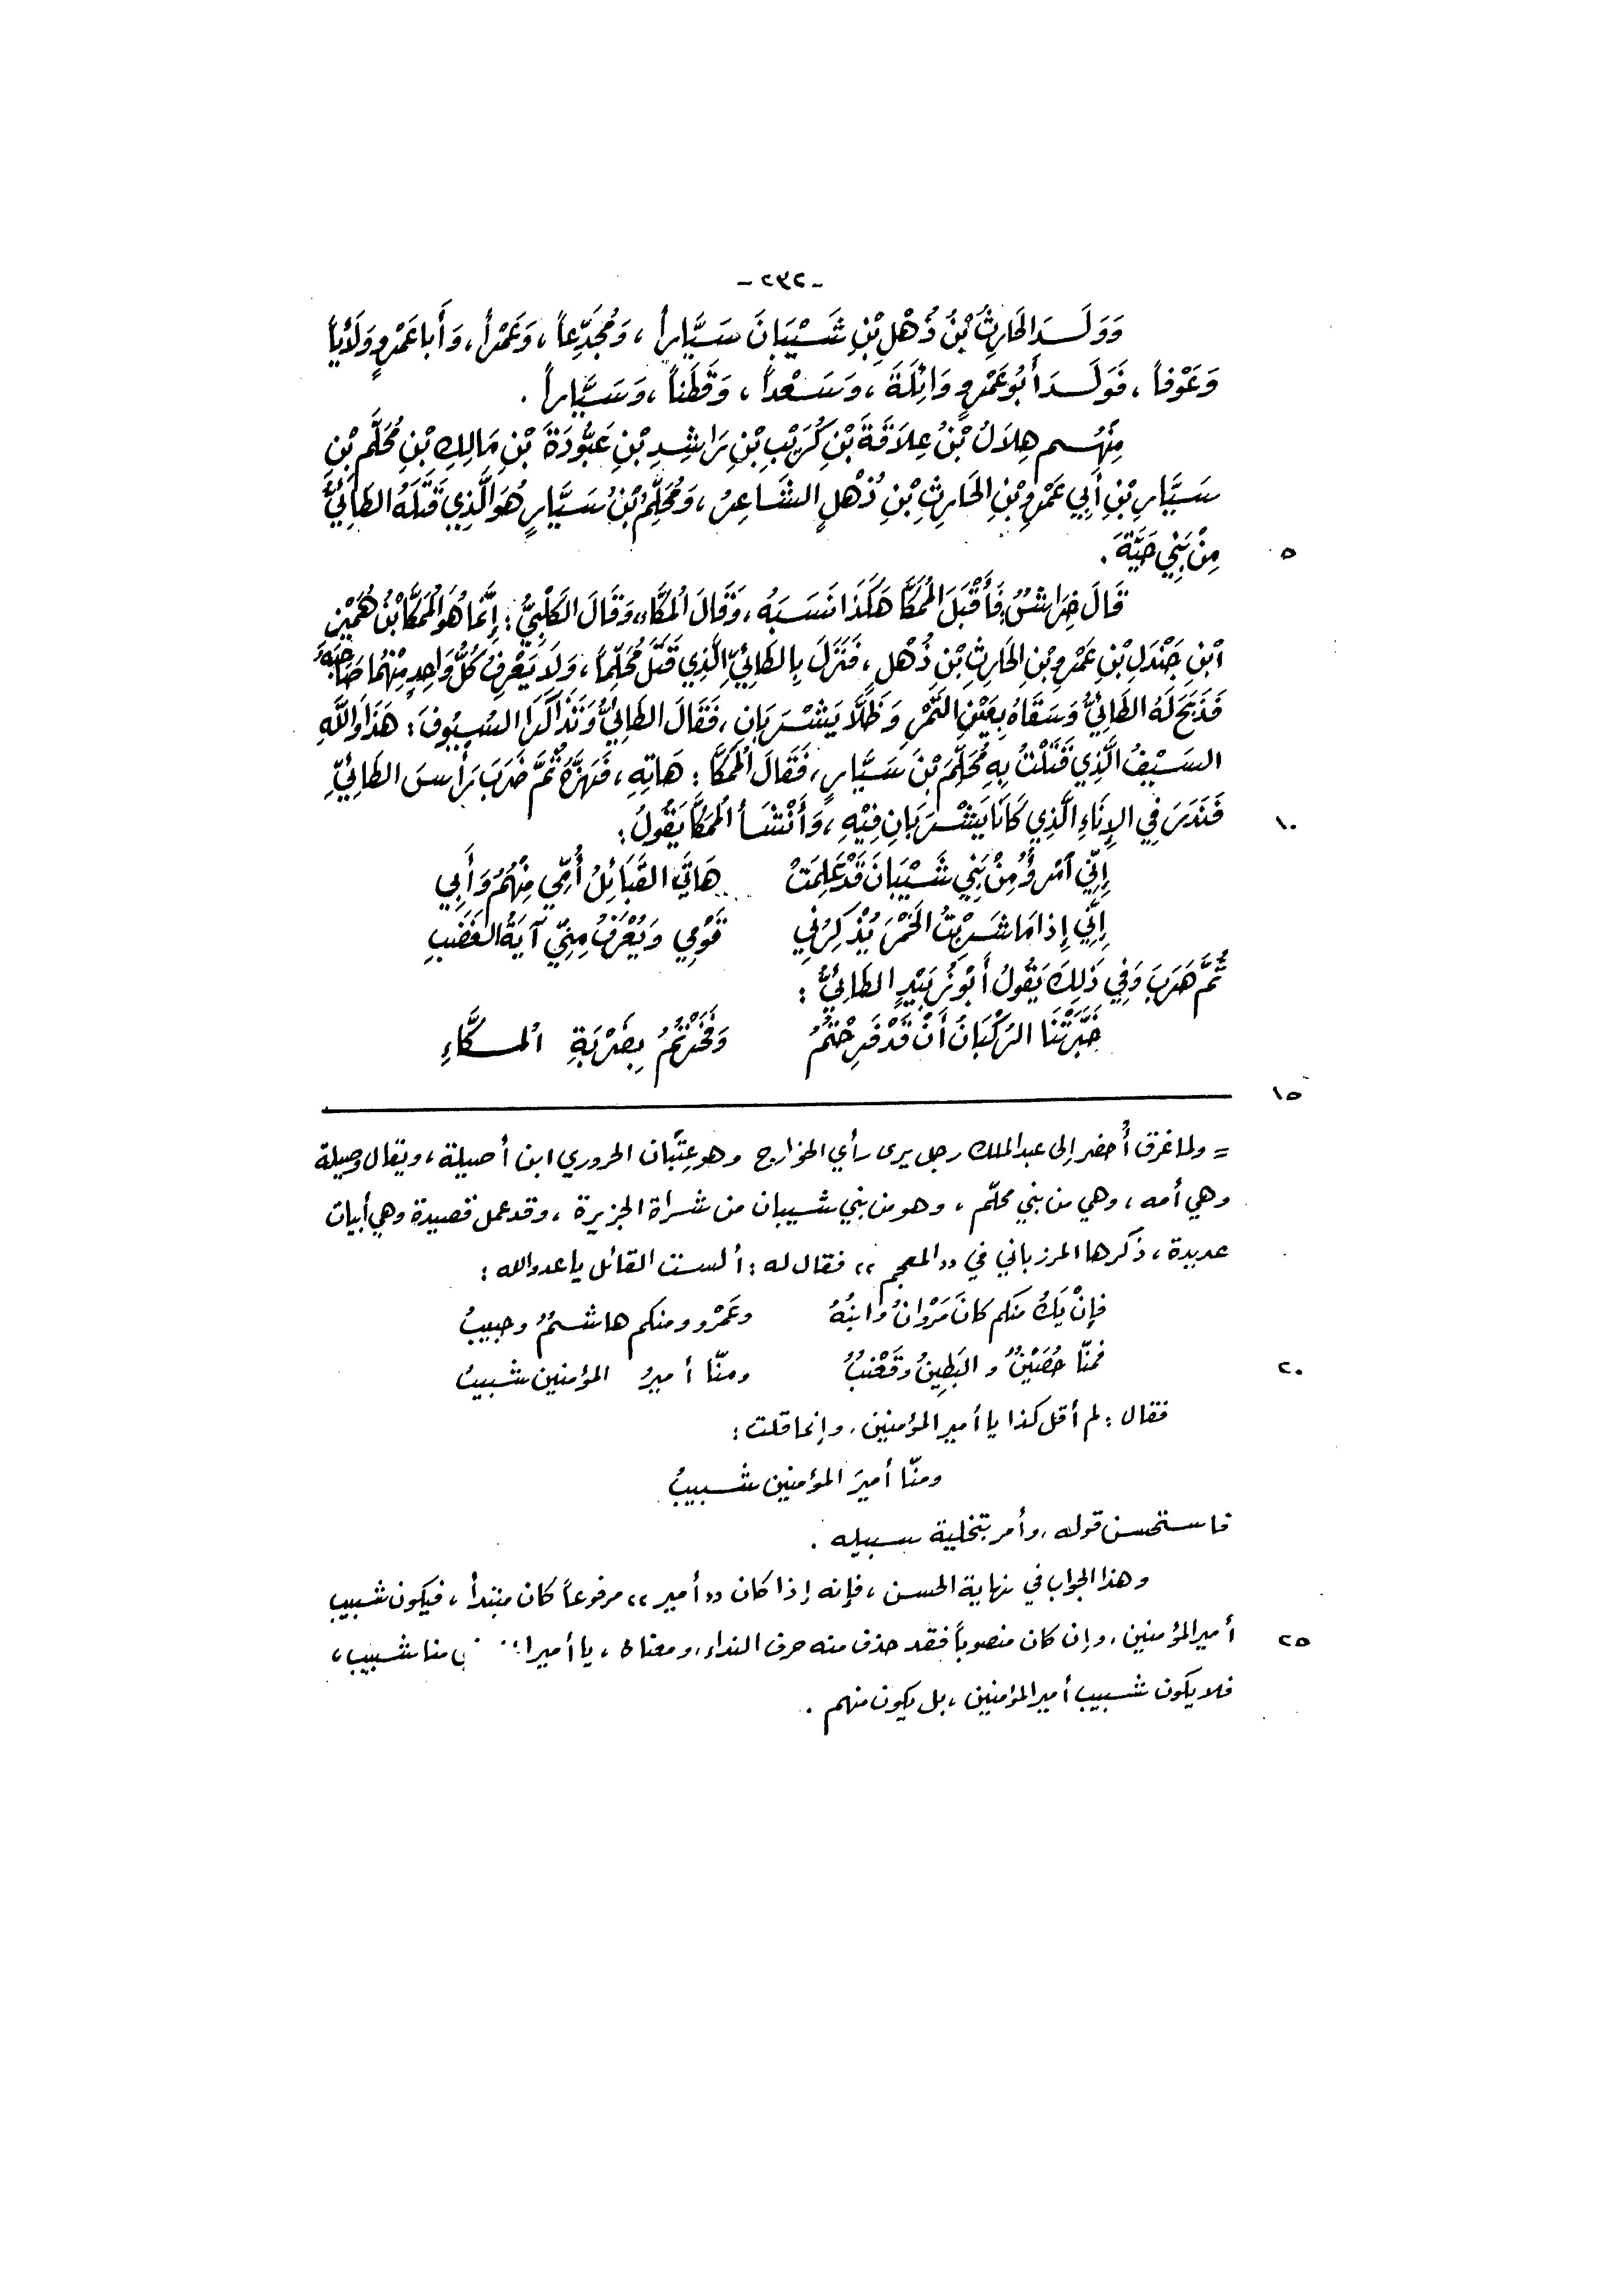 - ٢٣٢ -
وَوَلَدَ الحَارِثُ بْنُ ذُهْلِ بْنِ شَيْبَانَ سَيَّاراً ، وَمُجَدِّعاً ، وَعَمْراً ، وَأَبا عَمْرٍو وَلَأْياً
وَعَوْفاً ، فَوَلَدَ أَبُو عَمْرٍو وَائِلَةَ ، وَسَعْداً ، وَقَطَناً ، وَسَيَّاراً .
مِنْهُم هِلَالُ بْنُ عِلَاقَةَ بْنِ كُرَيْبِ بْنِ رَاشِدِ بْنِ عَبُّودَةَ بْنِ مَالِكِ بْنِ مُحَلَّمِ بْنِ
سَيَّارِ بْنِ أَبِي عَمْرِو بْنِ الحَارِثِ بْنِ ذُهْلٍ الشَّاعِرُ ، وَمُحَلِّمُ بْنُ سَيَّارٍ هُوَ الَّذِي قَتَلَهُ الطَّائِيُّ
مِنْ بَنِي حَيَّةَ . ٥
قَالَ خِرَاشٌ : فَأَقْبَلَ المُكَّا هَكَذَا نَسَبَهُ ، وَقَالَ المُكَّاءِ وَقَالَ الكَلْبِيُّ : إِنَّمَا هُوَ المُكَّا بْنُ هُمَيْنِ
ابْنِ جَنْدَلِ بْنِ عَمْرِو بْنِ الحَارِثِ بْنِ ذُهْلٍ ، فَنَزَلَ بِالطَّائِيِّ الَّذِي قَتَلَ مُحَلِّماً ، وَلَا يَعْرِفُ كُلُّ وَاحِدٍ مِنْهُمَا صَاحِبَهُ
فَذَبَحَ لَهُ الطَّائِيُّ وَسَقَاهُ بِعَيْنِ التَّمْرِ وَظَلَّا يَشْرَبَانِ ، فَقَالَ الطَّائِيُّ وَتَذَاكَرَا السُّيُوفَ : هَذَا وَاللَّهِ
السَّيْفُ الَّذِي قَتَلْتُ بِهِ مُحَلِّمَ بْنَ سَيَّارٍ ، فَقَالَ المُكَّا : هَاتِهِ ، فَهَزَّهُ ثُمَّ ضَرَبَ رَأْسَ الطَّائِيِّ
فَنَدَرَ فِي الإِنَاءِ الَّذِي كَانَا يَشْرَبَانِ فِيْهِ ، وَأَنْشَأَ المُكَّا يَقُولُ : ١٠
إِنِّي امْرُؤٌ مِنْ بَنِي شَيْبَانَ قَدْ عَلِمَتْ هَاتِي القَبَائِلُ أُمِّي مِنْهُمُ وَأَبِي
إِنِّي إِذا مَا شَرِبْتُ الخَمْرَ يُذْكِرُنِي قَوْمِي وَيُعْرَفُ مِنِّي آيَةُ الغَضَبِ
ثُمَّ هَرَبَ وَفِي ذَلِكَ يَقُولُ أَبُو زُبَيْدٍ الطَّائِيُّ :
خَبَّرَتْنَا الرُّكْبَانُ أَنْ قَدْ فَرِحْتُمُ وَفَخَرْتُمُ بِضَرْبَةِ المُكَّاءِ
١٥
= ولما غرق أُحضر إلى عبد الملك رجل يرى رأي الخوارج وهو عِتْبان الحروري ابن أصيلة ، ويقال وصيلة
وهي أمه ، وهي من بني محلّم ، وهو من بني شيبان من شراة الجزيرة ، وقد عمل قصيدة وهي أبيات
عديدة ، ذكرها المرزباني في « المعجم » فقال له : ألست القائل يا عدو الله :
فإنْ يَكُ منكم كانَ مَرْوانُ وابنُهُ وعَمْرو ومنكم هاشمٌ وحبيبُ
فمنّا حُصَيْنٌ والبَطِينُ وقَعْنبٌ ومنّا أميرُ المؤمنين شبيبُ ٢٠
فقال : لم أقل كذا يا أمير المؤمنين ، وإنما قلت :
ومنّا أميرَ المؤمنين شبيبُ
فاستحسن قوله ، وأمر بتخلية سبيله .
وهذا الجواب في نهاية الحسن ، فإنه إذا كان « أمير » مرفوعاً كان مبتدأ ، فيكون شبيب
أمير المؤمنين ، وإن كان منصوباً فقد حذف منه حرف النداء ، ومعناه ، يا أمير منا شبيب ، ٢٥
فلا يكون شبيب أمير المؤمنين ، بل يكون منهم .